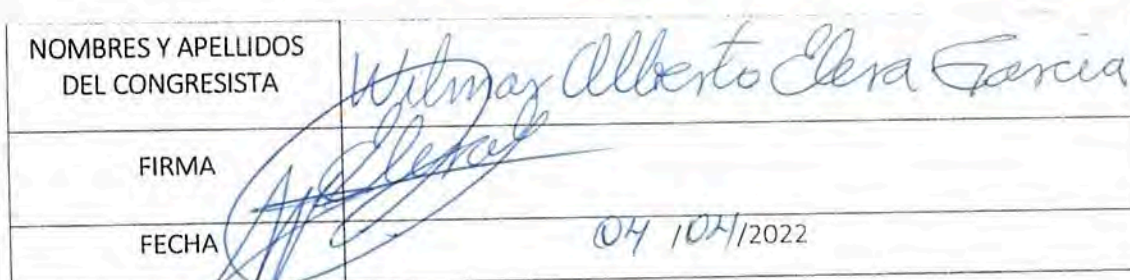 NOMBRES Y APELLIDOS
DEL CONGRESISTA
Wilmar Alberto Elera Garcia
FIRMA
Elera
FECHA
04 / 04 / 2022